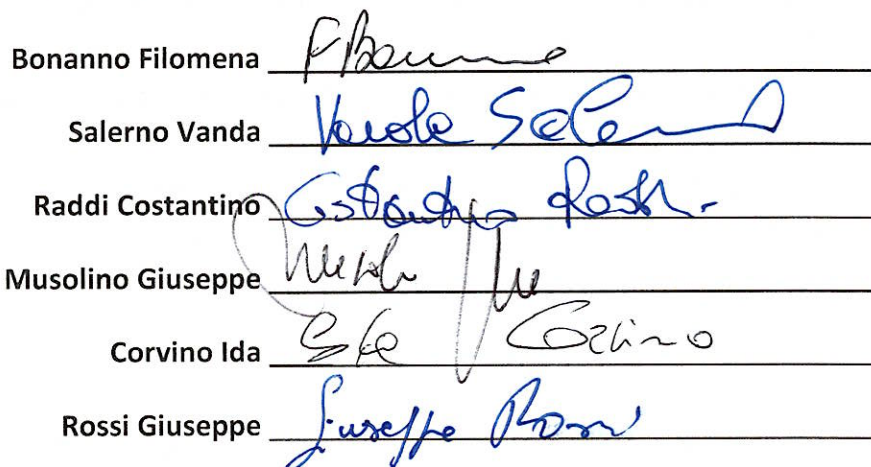 Bonanno Filomena F Bonanno
Salerno Vanda Vanda Salerno
Raddi Costantino Costantino Raddi
Musolino Giuseppe
Corvino Ida Ida Corvino
Rossi Giuseppe Giuseppe Rossi